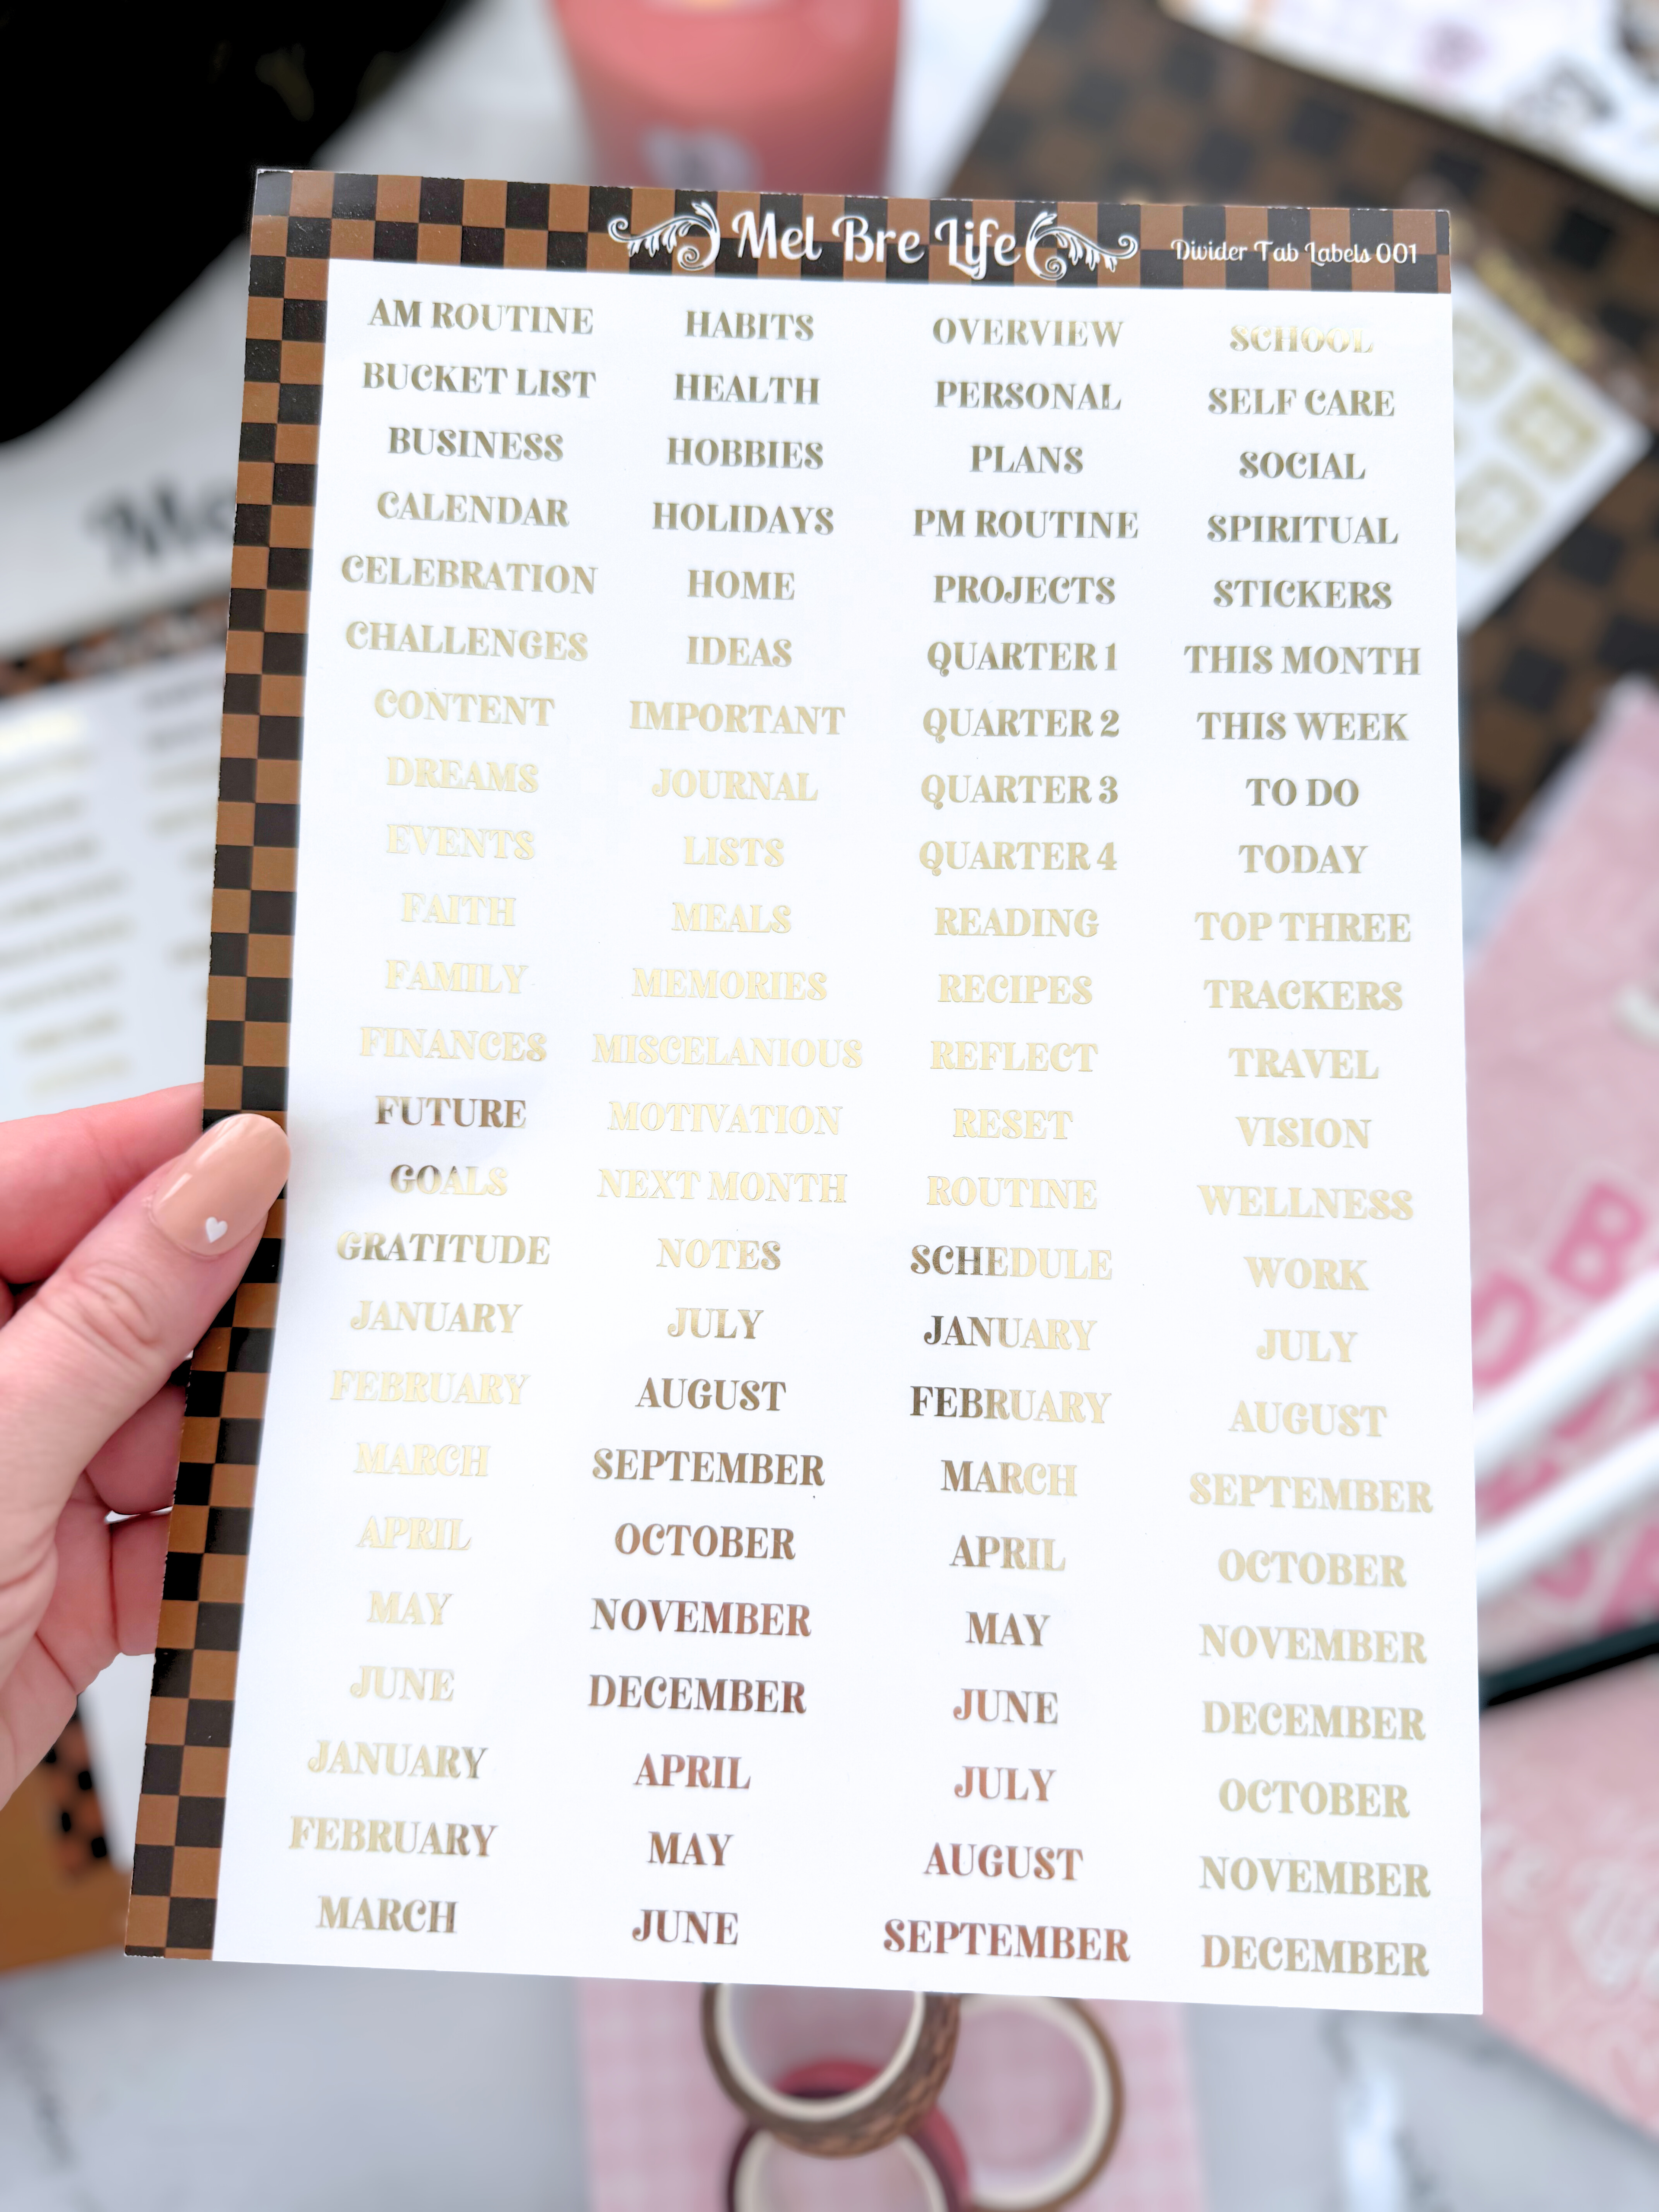 Mel Bre Life Divider Tab Labels 001
AM ROUTINE HABITS OVERVIEW SCHOOL
BUCKET LIST HEALTH PERSONAL SELF CARE
BUSINESS HOBBIES PLANS SOCIAL
CALENDAR HOLIDAYS PM ROUTINE SPIRITUAL
CELEBRATION HOME PROJECTS STICKERS
CHALLENGES IDEAS QUARTER 1 THIS MONTH
CONTENT IMPORTANT QUARTER 2 THIS WEEK
DREAMS JOURNAL QUARTER 3 TO DO
EVENTS LISTS QUARTER 4 TODAY
FAITH MEALS READING TOP THREE
FAMILY MEMORIES RECIPES TRACKERS
FINANCES MISCELANIOUS REFLECT TRAVEL
FUTURE MOTIVATION RESET VISION
GOALS NEXT MONTH ROUTINE WELLNESS
GRATITUDE NOTES SCHEDULE WORK
JANUARY JULY JANUARY JULY
FEBRUARY AUGUST FEBRUARY AUGUST
MARCH SEPTEMBER MARCH SEPTEMBER
APRIL OCTOBER APRIL OCTOBER
MAY NOVEMBER MAY NOVEMBER
JUNE DECEMBER JUNE DECEMBER
JANUARY APRIL JULY OCTOBER
FEBRUARY MAY AUGUST NOVEMBER
MARCH JUNE SEPTEMBER DECEMBER